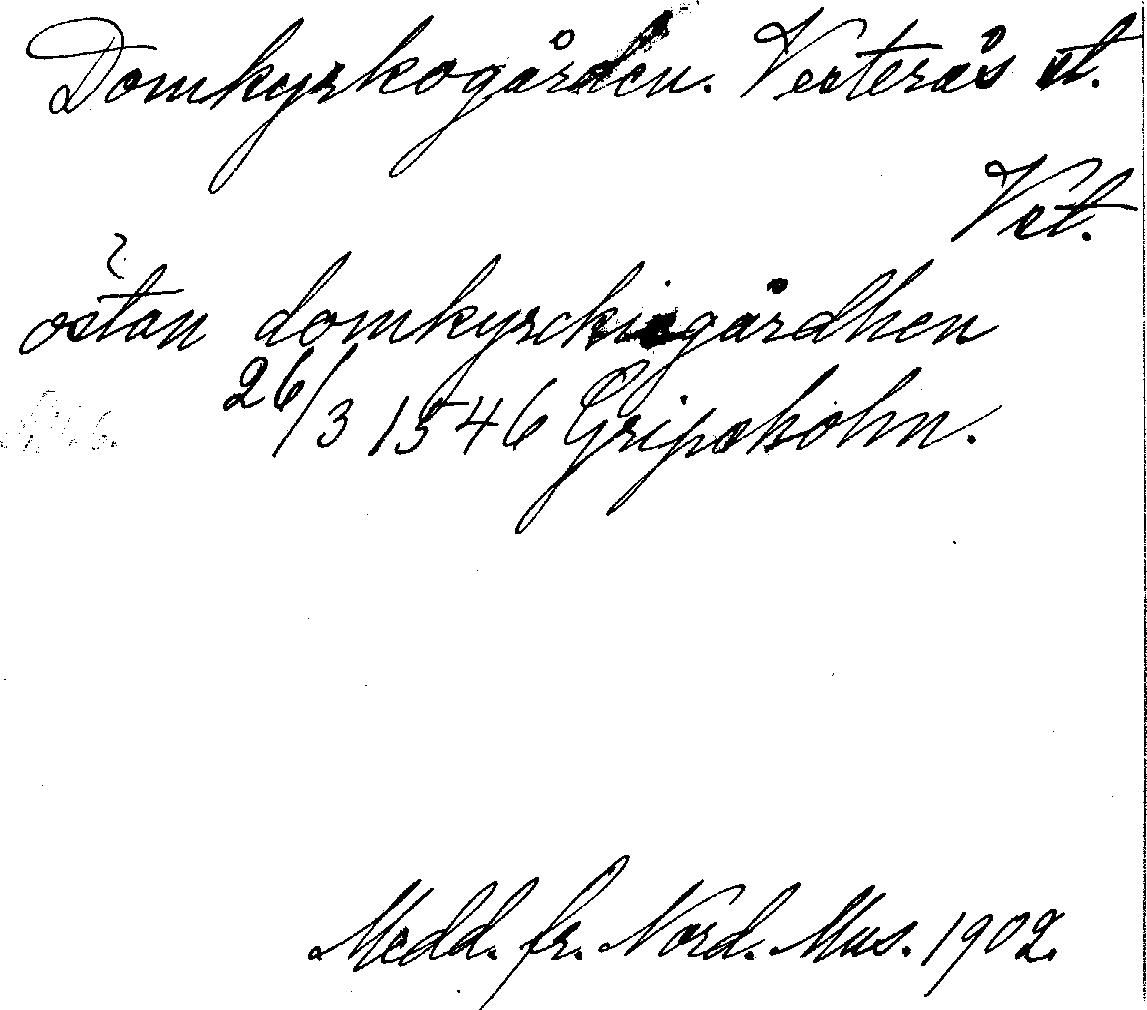 Domkyrkogården. Vesterås st.
Vst.
östan domkyrckiegårdhen
26/3 1546 Gripsholm.
Medd. fr. Nord. Mus. 1902.